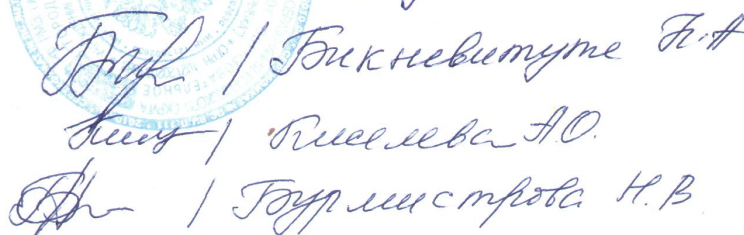 / Бикневитуте Н.А
/ Киселева А.О.
/ Бурмистрова Н.В